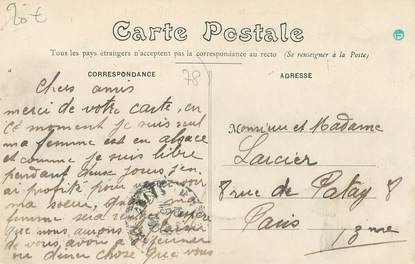 20 €
Carte Postale
Tous les pays étrangers n'acceptent pas la correspondance au recto (Se renseigner à la Poste)
CORRESPONDANCE
ADRESSE
78
Chers amis
merci de votre carte, en
ce moment je suis seul
ma femme est en alsace
et comme je suis libre
pendant deux jours j'en
ai profité pour
ma soeur, quand ma
femme sera
que nous aurons le plaisir
de vous avoir a déjeuner
ou diner chose que vous
Monsieur et Madame
Larcier
8 rue de Patay 8
Paris
13 eme